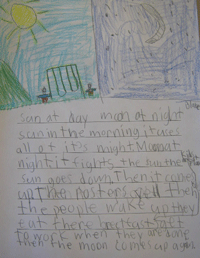 sun at day moon at night
sun in the morning it rases
all of it's might Moon at
night it fights the sun the
sun goes down. Then it comes
up The rosters yell then
the people wake up they
eat there breakfast
to work when they are done
then the moon comes up again